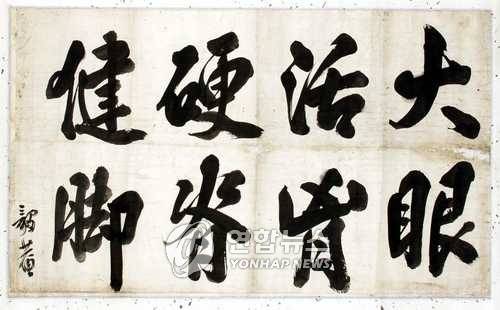 大眼
活胷
硬脊
健脚
연합뉴스
YONHAPNEWS